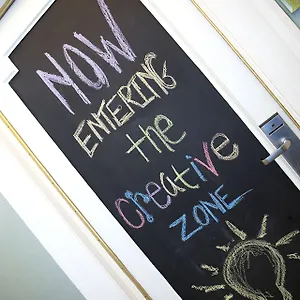 NOW
ENTERING
the
creative
ZONE